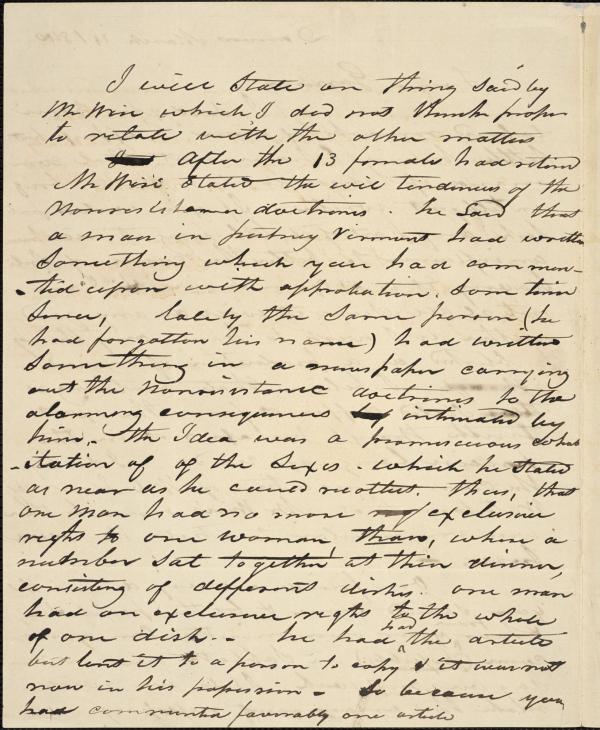 I will State on thing said by
Mr Wise which I did not think proper
to relate with the other matters
After the 13 females had retired
Mr Wise stated the evil tendencies of the
Nonresistance doctrines. he said that
a man in putney Vermont had written
Something which you had commen-
-ted upon with approbation. Som time
Since, lately the Same person (he
had forgotten his name) had written
Something in a newspaper carrying
out the Nonresistance doctrines to the
alarming consequences intimated by
him. the Idea was a promiscuous coha
-itation of of the Sexes. which he stated
as near as he could recollect. thus, that
one man had no more exclusive
right to one woman than, where a
number Sat together at their dinner,
consisting of different dishes. one man
had an exclusive right to the whole
of one dish. - he had had the article
but lent it to a person to copy & it was not
now in his possession - So because you
had commented favorably one article